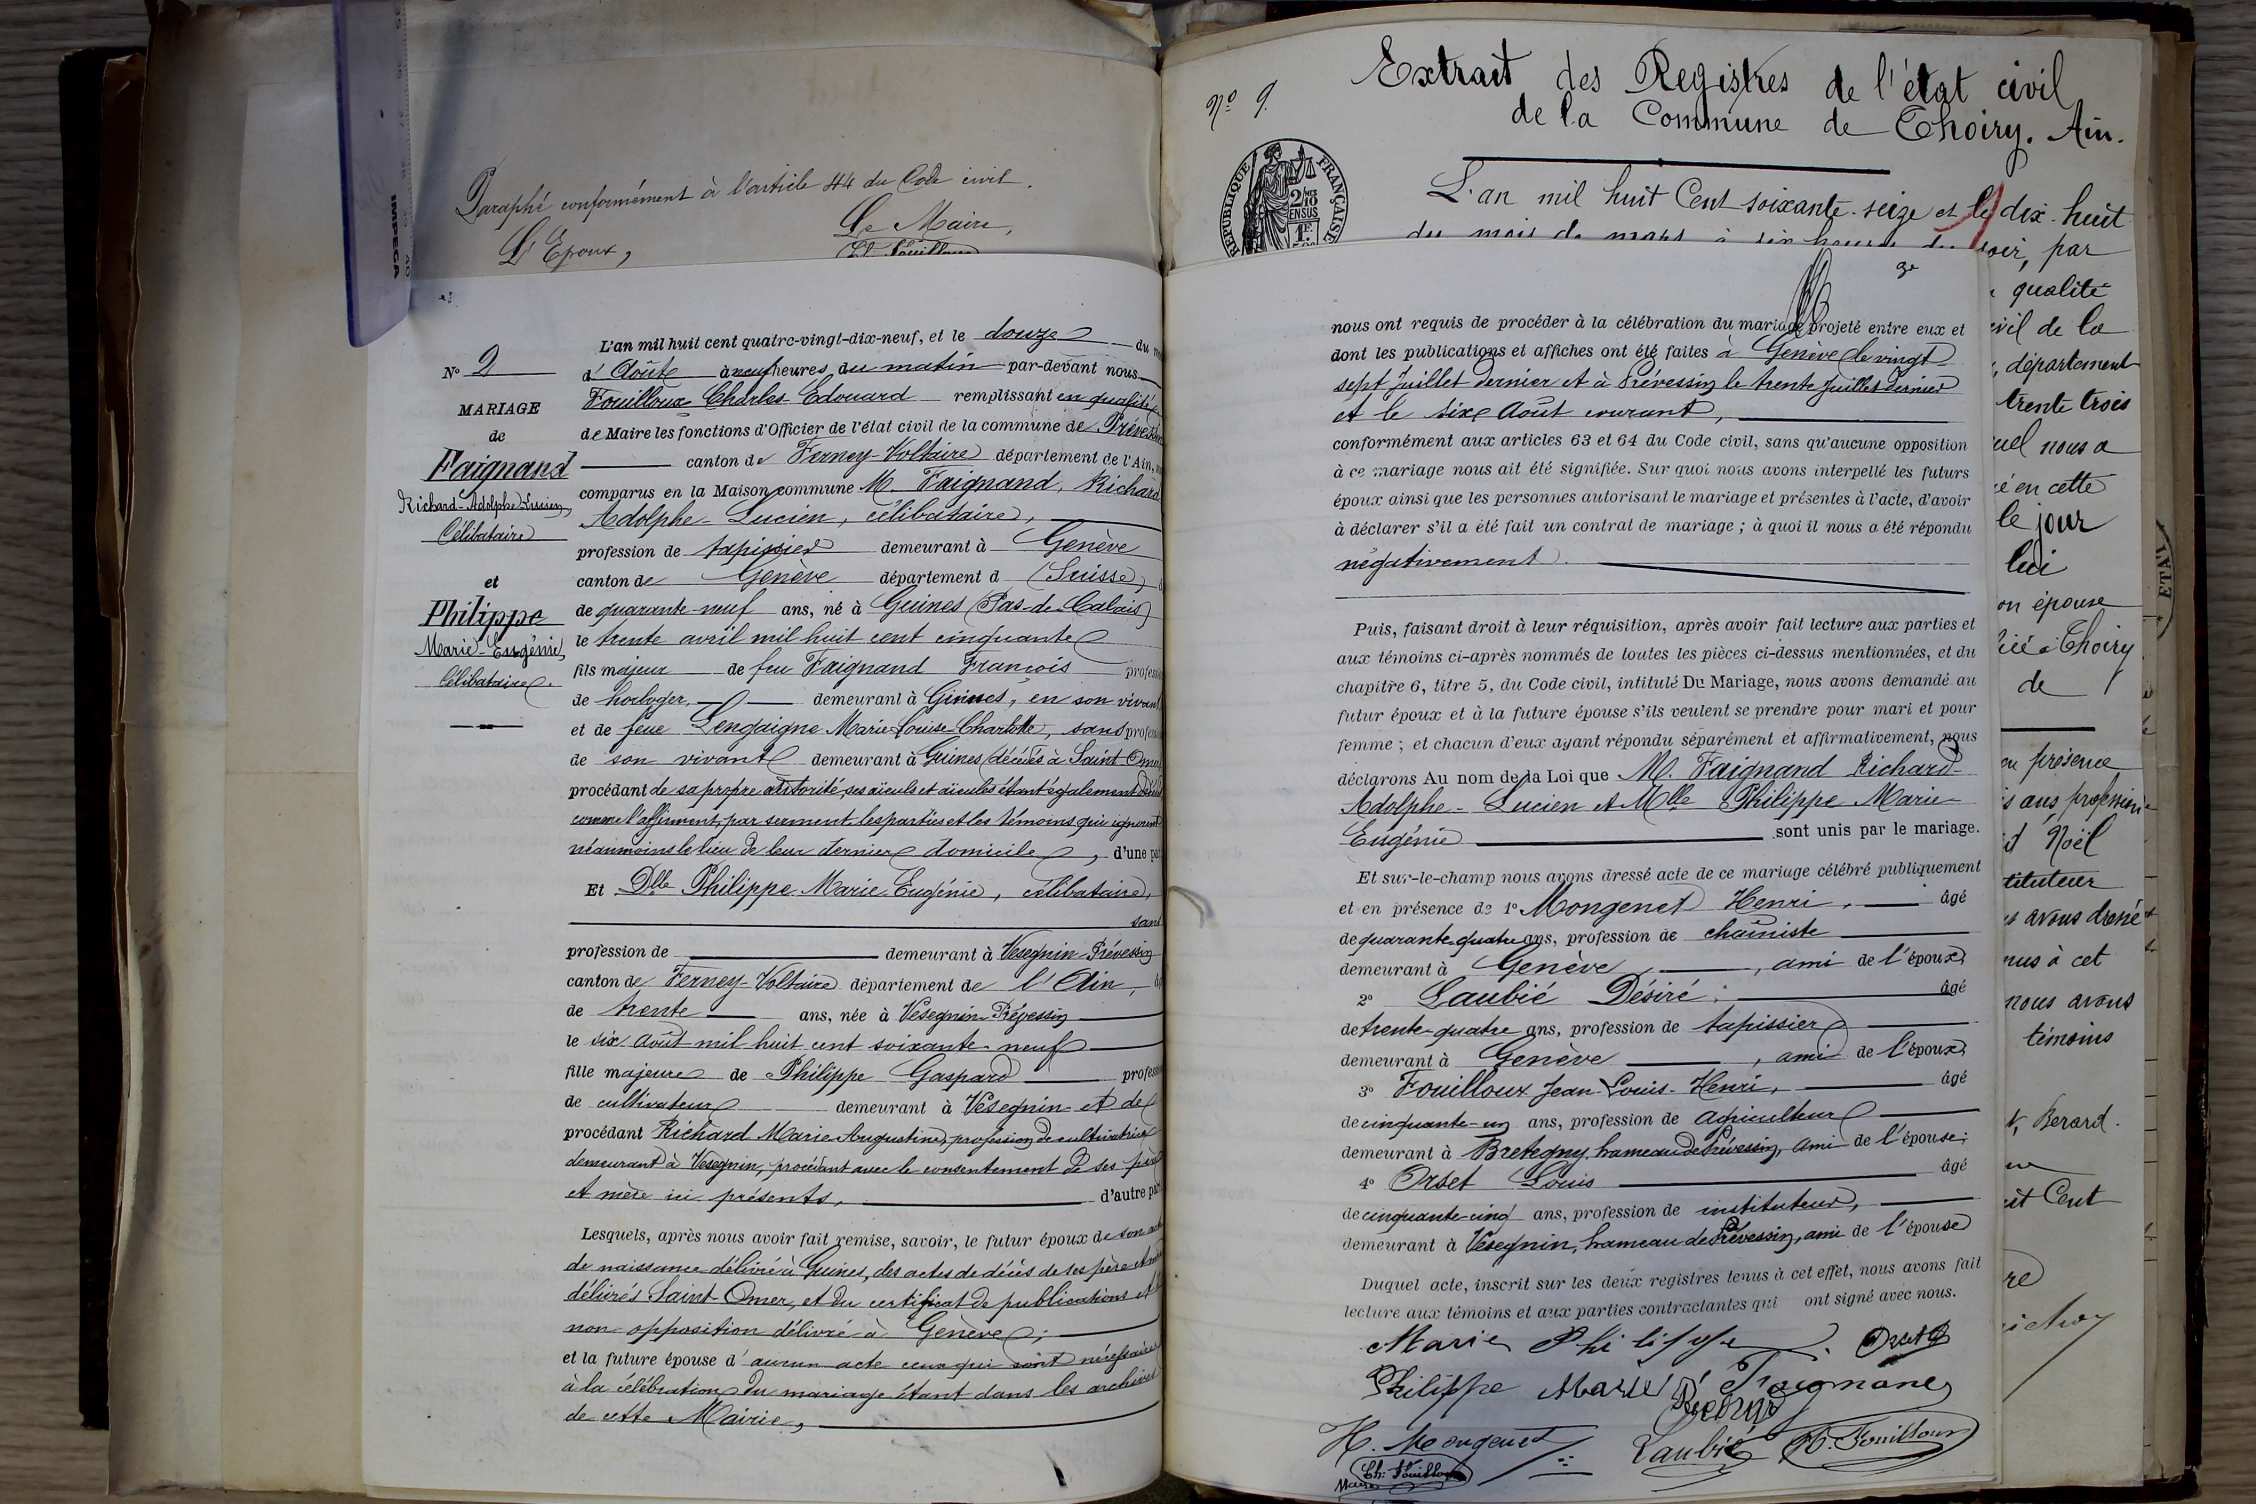 Paraphé conformément à l'article 44 du Code civil.
Le Maire,
L'Epoux,
Ch. Fouilloux
IMPEGA
L'an mil huit cent quatre-vingt-dix-neuf, et le douze du
d'Août à neuf heures du matin par-devant nous
Fouilloux Charles Edouard remplissant en qualité
de Maire les fonctions d'Officier de l'état civil de la commune de Prévessin
canton de Ferney-Voltaire département de l'Ain,
comparus en la Maison commune M. Faignand, Richard
Adolphe-Lucien, célibataire,
profession de tapissier demeurant à Genève
canton de Genève département d (Suisse)
de quarante-neuf ans, né à Guines (Pas-de-Calais)
le trente avril mil huit cent cinquante
fils majeur de feu Faignand François
de horloger, demeurant à Guines, en son vivant
et de feue Lengaigne Marie-Louise-Charlotte, sans
de son vivant demeurant à Guines (décédés à Saint-Omer
procédant de sa propre autorité, ses aïeuls et aïeules étant également
comme l'affirment, par serment, les parties et les témoins qui ignorent
néanmoins le lieu de leur dernier domicile, d'une
Et Dlle Philippe Marie-Eugénie, célibataire,
sans
profession de demeurant à Vesegnin-Prévessin
canton de Ferney-Voltaire département de l'Ain,
de trente ans, née à Vesegnin-Prévessin
le six Août mil huit cent soixante-neuf
fille majeure de Philippe Gaspard
de cultivateur demeurant à Vesegnin et de
procédant Richard Marie-Augustine, profession de cultivatrice
demeurant à Vesegnin, procédant avec le consentement de ses père
et mère ici présents, d'autre
Lesquels, après nous avoir fait remise, savoir, le futur époux de son
de naissance délivré à Guines, des actes de décès de ses père et
délivrés Saint-Omer, et du certificat de publications et
non opposition délivré à Genève;
et la future épouse d'aucun acte ceux qui sont nécessaires
à la célébration du mariage étant dans les archives
de cette Mairie,
No 2
MARIAGE
de
Faignand
Richard-Adolphe-Lucien,
Célibataire
et
Philippe
Marie-Eugénie,
Célibataire.
No 9.
Extrait des Registres de l'état civil
de la Commune de Thoiry. Ain.
RÉPUBLIQUE FRANÇAISE
2/10
EN SUS
1F.
L'an mil huit Cent soixante-seize et le dix-huit
du mois de mars à six heures du soir, par
qualité
civil de la
département
trente trois
nous a
en cette
le jour
lui
épouse
à Thoiry
de
présence
ans, profession
Noël
avons dressé
à cet
nous avons
témoins
Berard.
Cent
nous ont requis de procéder à la célébration du mariage projeté entre eux et
dont les publications et affiches ont été faites à Genève le vingt
sept Juillet dernier et à Prévessin le trente Juillet dernier
et le six Août courant,
conformément aux articles 63 et 64 du Code civil, sans qu'aucune opposition
à ce mariage nous ait été signifiée. Sur quoi nous avons interpellé les futurs
époux ainsi que les personnes autorisant le mariage et présentes à l'acte, d'avoir
à déclarer s'il a été fait un contrat de mariage ; à quoi il nous a été répondu
négativement.
Puis, faisant droit à leur réquisition, après avoir fait lecture aux parties et
aux témoins ci-après nommés de toutes les pièces ci-dessus mentionnées, et du
chapitre 6, titre 5, du Code civil, intitulé Du Mariage, nous avons demandé au
futur époux et à la future épouse s'ils veulent se prendre pour mari et pour
femme ; et chacun d'eux ayant répondu séparément et affirmativement, nous
déclarons Au nom de la Loi que M. Faignand Richard-
Adolphe-Lucien et Mlle Philippe Marie-
Eugénie sont unis par le mariage.
Et sur-le-champ nous avons dressé acte de ce mariage célébré publiquement
et en présence de 1o Mongenet Henri, âgé
de quarante-quatre ans, profession de chaîniste
demeurant à Genève, ami de l'époux
2o Laubié Désiré, âgé
de trente-quatre ans, profession de tapissier
demeurant à Genève, ami de l'époux
3o Fouilloux Jean-Louis-Henri, âgé
de cinquante-un ans, profession de agriculteur
demeurant à Bretegny, hameau de Prévessin, ami de l'épouse;
4o Orset Louis âgé
de cinquante-cinq ans, profession de instituteur,
demeurant à Vesegnin, hameau de Prévessin, ami de l'épouse
Duquel acte, inscrit sur les deux registres tenus à cet effet, nous avons fait
lecture aux témoins et aux parties contractantes qui ont signé avec nous.
Marie Philippe Orset
Philippe Marie Faignand
H. Mongenet Laubié H. Fouilloux
Ch. Fouilloux
Maire